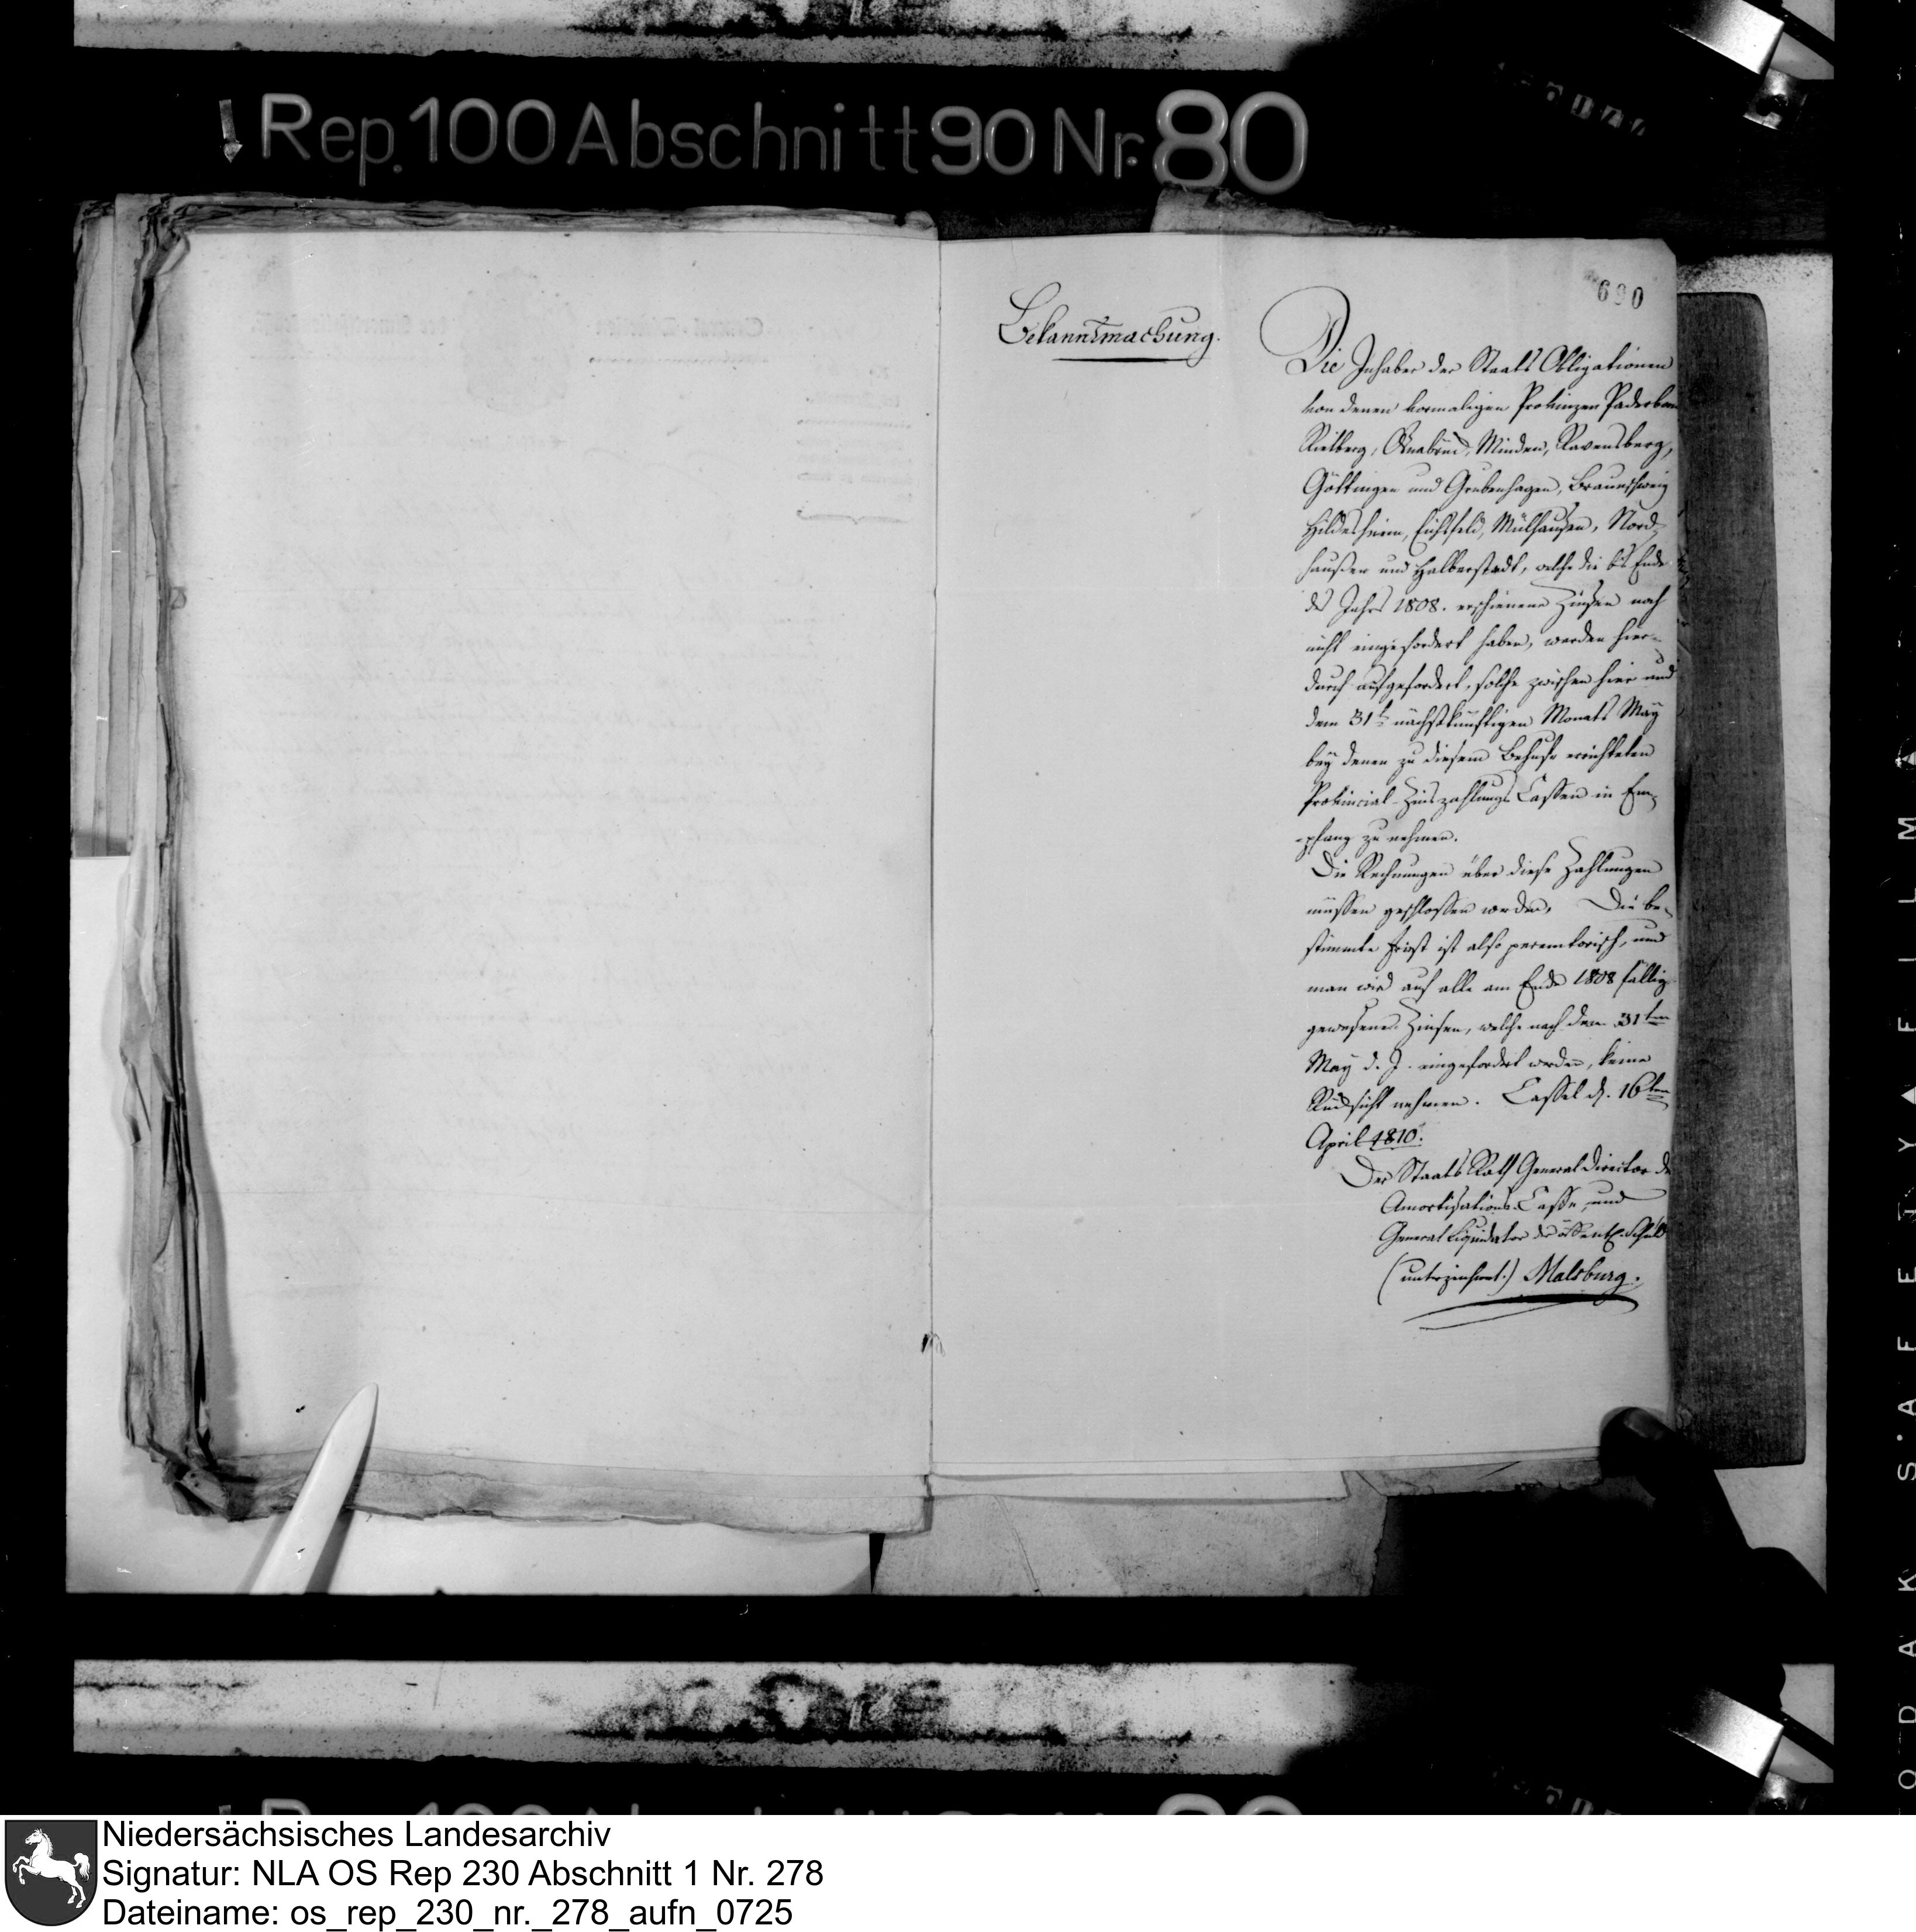 Rep. 100 Abschnitt 90 Nr. 80
690
Bekanntmachung.
Die Inhaber der Staats Obligationen
von denen vormaligen Provinzen Paderborn
Rietberg, Osnabrück, Minden, Ravensberg,
Göttingen und Grubenhagen, Braunschweig
Hildesheim, Eichsfeld, Mülhausen, Nord-
haußen und Halberstadt, welche die bis Ende
des Jahrs 1808. erschienene Zinsen noch
nicht eingefordert haben, werden hier-
durch aufgefordert, solche zwischen hier und
dem 31t. nächstkünftigen Monats May
bey denen zu diesem Behufe errichteten
Provincial-Zinszahlungs Cassen in Em-
-pfang zu nehmen.
Die Rechnungen über diese Zahlungen
müssen geschlossen werden, Die be-
stimmte Frist ist also peremtorisch, und
man wird auf alle am Ende 1808 fällig
gewesene Zinsen, welche nach dem 31ten
May d. J. eingefordert werden, keine
Rücksicht nehmen. Cassel d. 16ten
April 1810.
Der Staats Rath General Director de
Amortisations-Casse, und
General Liquidator der öffentl. Schuld
(unterzeichnet.) Malsburg.
KODAK · SAFETY FILM
Niedersächsisches Landesarchiv
Signatur: NLA OS Rep 230 Abschnitt 1 Nr. 278
Dateiname: os_rep_230_nr._278_aufn_0725